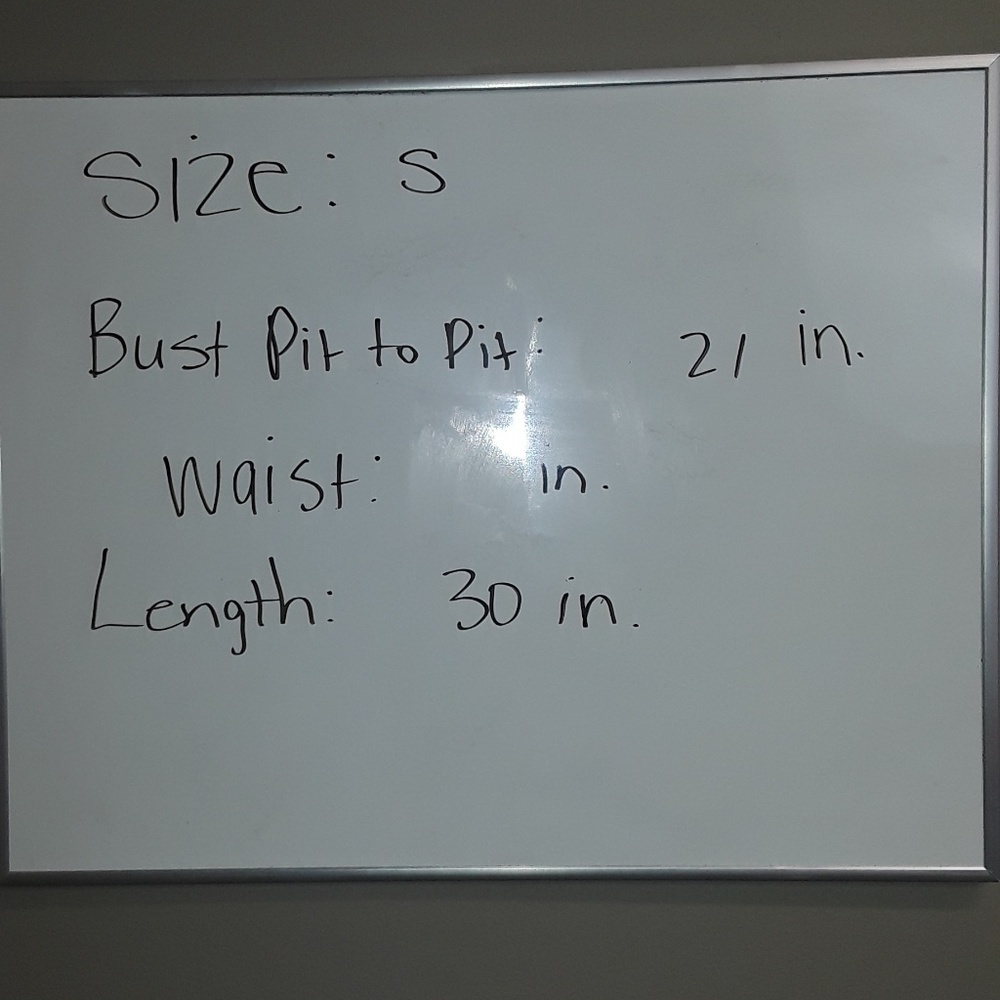 Size: S
Bust Pit to Pit: 21 in.
Waist: in.
Length: 30 in.